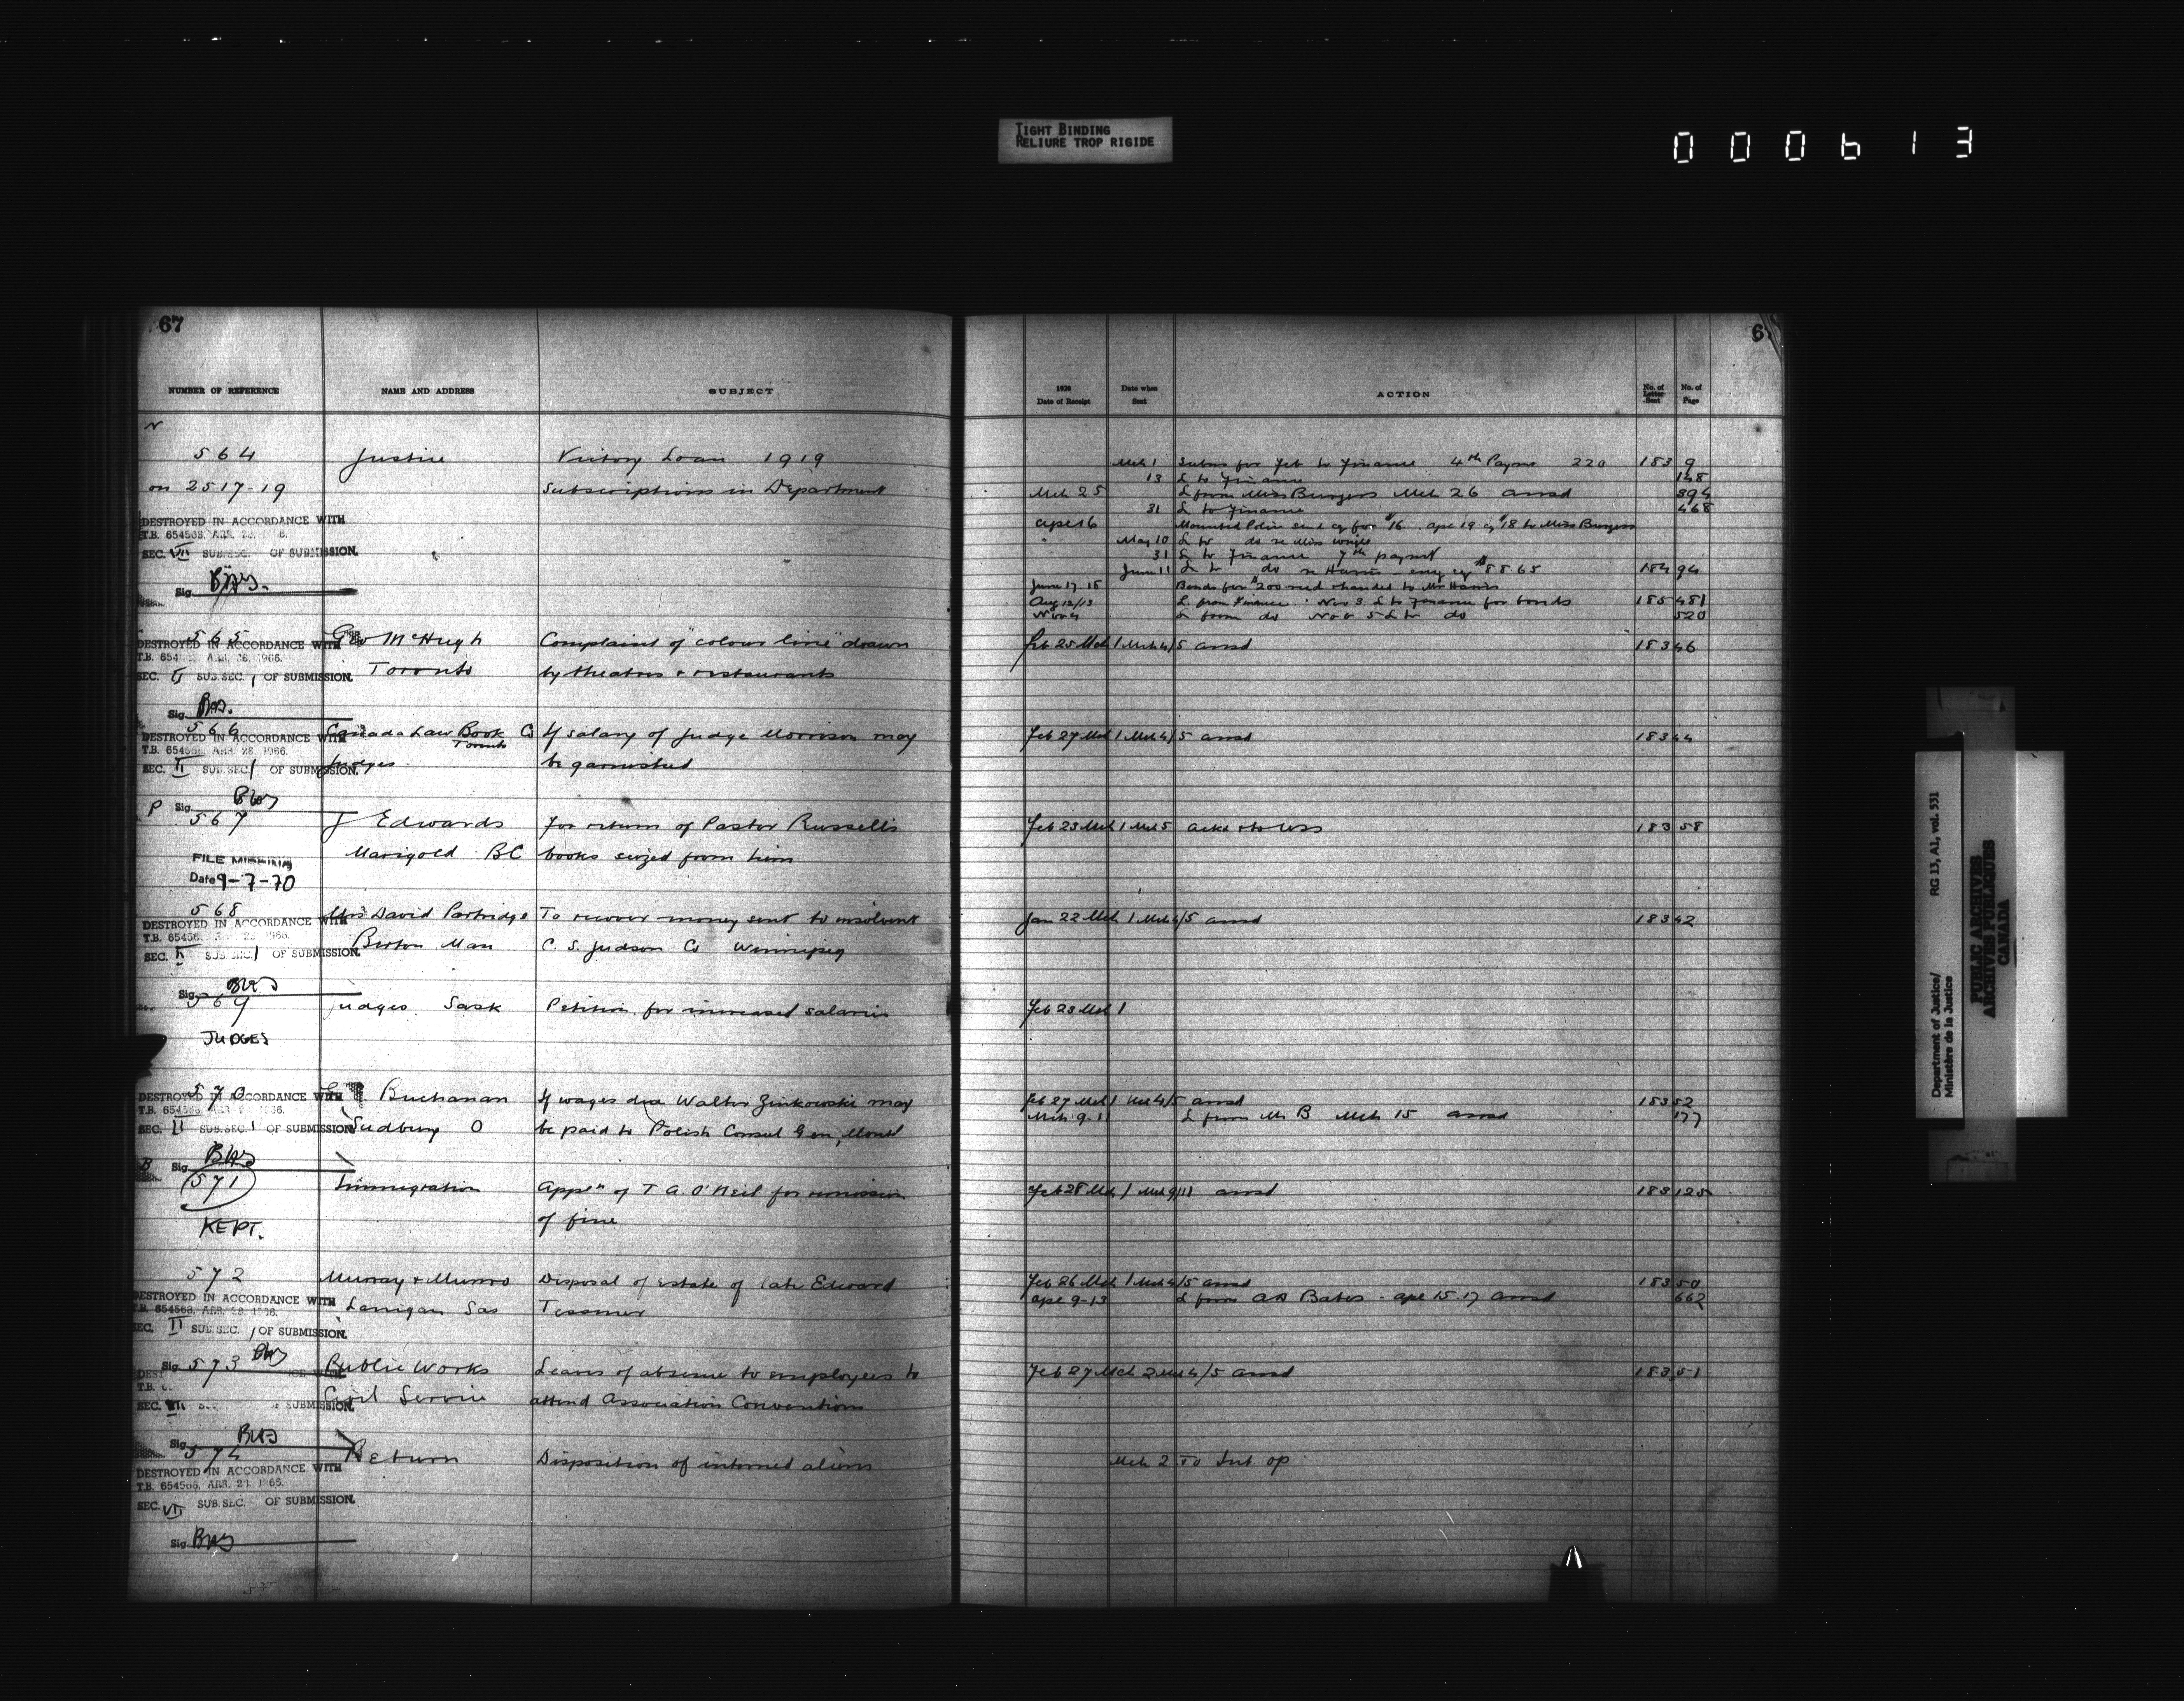 TIGHT BINDING
RELIURE TROP RIGIDE
000613
67
NUMBER OF REFERENCE NAME AND ADDRESS SUBJECT
564 Justice Victory Loan 1919
on 2517-19 Subscriptions in Department
DESTROYED IN ACCORDANCE WITH
T.B. 654568, APR. 28, 1966.
SEC. VII SUB.SEC. OF SUBMISSION.
Sig.
565 Geo McHugh Complaint of "colour line" drawn
DESTROYED IN ACCORDANCE WITH
T.B. 654 APR. 28, 1966.
Toronto by theatres & restaurants
SEC. SUB.SEC. 1 OF SUBMISSION.
Sig.
566 Canada Law Book Co If salary of Judge Morrison may
Toronto
DESTROYED IN ACCORDANCE WITH
T.B. 654568, APR. 28, 1966.
Judges. be garnisheed
SEC. II SUB.SEC. 1 OF SUBMISSION.
P Sig.
567 J Edwards For return of Pastor Russell's
Marigold BC books seized from him
FILE MISSING
Date 9-7-70
568 Mrs David Partridge To recover money sent to insolvent
DESTROYED IN ACCORDANCE WITH
T.B. 65456
Man C. S. Judson Co Winnipeg
SEC. SUB.SEC. 1 OF SUBMISSION.
Sig.
569 Judges Sask Petition for increased salaries
JUDGES
570 Buchanan If wages due Walter Zinkowski may
DESTROYED IN ACCORDANCE WITH
T.B. 654568
Sudbury O be paid to Polish Consul Gen, Montl
SEC. II SUB.SEC. 1 OF SUBMISSION.
B Sig.
571 Immigration Appln of T A. O'Neil for remission
of fine
KEPT.
572 Murray & Munro Disposal of estate of late Edward
DESTROYED IN ACCORDANCE WITH
T.B. 654568, APR. 28, 1966.
Lanigan Sas
SEC. II SUB.SEC. 1 OF SUBMISSION.
Sig.
573 Public Works Leaves of absence to employees to
Civil Service attend Association Conventions
SEC. VII OF SUBMISSION.
Sig.
574 Return Disposition of interned aliens
DESTROYED IN ACCORDANCE WITH
T.B. 654568, APR. 28, 1966.
SEC. VII SUB.SEC. OF SUBMISSION.
Sig.
1920 Date of Receipt Date when Sent ACTION No. of Letter Sent No. of Page
Mch 1 Subns for Feb to Finance 4th Paymt 220 183 9
13 L to Finance 148
Mch 25 L from Miss Burgess Mch 26 ansd 394
31 L to Finance 468
Apl 16 Mounted Police send cq for $16. Apl 19 cq $18 to Miss Burgess
May 10 L to do re Miss
31 L to Finance 7th paymt
June 11 L to do re Harris encg cq $88.65 184 94
June 17-18 Bonds for $200 recd & handed to Mr Harris
Aug 12/13 L. from Finance. Nov 3 L to Finance for bonds 185 481
Nov 4 L from do Nov 5 L to do 520
Feb 25 Mch 1 Mch 4/5 ansd 183 46
Feb 27 Mch 1 Mch 4/5 ansd 183 44
Feb 23 Mch 1 Mch 5 183 58
Jan 22 Mch 1 Mch 4/5 ansd 183 42
Feb 23 Mch 1
Feb 27 Mch 1 Mch 4/5 ansd 183 52
Mch 9-11 L from Mr B Mch 15 ansd 177
Feb 28 Mch 1 Mch 9/11 ansd 183 125
Feb 26 Mch 1 Mch 4/5 ansd 183 50
Apl 9-13 L from Bates - Apl 15.17 ansd 662
Feb 27 Mch 2 Mch 4/5 ansd 183 51
Mch 2 To Int op
Department of Justice/ RG 13, A1, vol. 531
Ministère de la Justice
PUBLIC ARCHIVES
ARCHIVES PUBLIQUES
CANADA